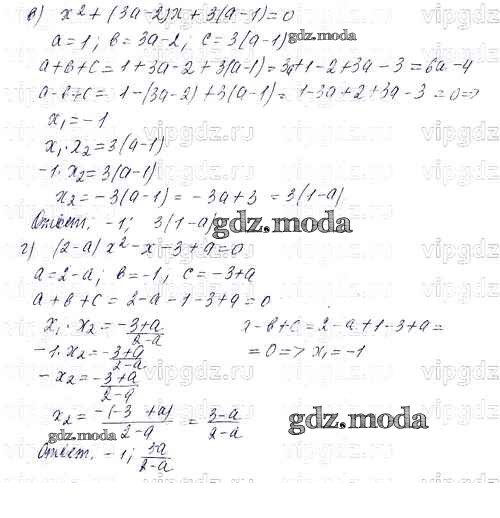 в) x² + (3a-2)x + 3(a-1) = 0
a = 1; в = 3a-2, c = 3(a-1) gdz.moda
a+в+c = 1+3a-2+3(a-1) = 3a+1-2+3a-3 = 6a-4
a-в+c = 1-(3a-2)+3(a-1) = 1-3a+2+3a-3 = 0 =>
x₁ = -1
x₁·x₂ = 3(a-1)
-1·x₂ = 3(a-1)
x₂ = -3(a-1) = -3a+3 = 3(1-a)
Ответ. -1; 3(1-a) gdz.moda
г) (2-a)x² - x - 3 + a = 0
a = 2-a; в = -1; c = -3+a
a+в+c = 2-a-1-3+a = 0
x₁·x₂ = -3+a/2-a
a-в+c = 2-a+1-3+a =
-1·x₂ = -3+a/2-a
= 0 => x₁ = -1
-x₂ = -3+a/2-a
x₂ = -(-3+a)/2-a = 3-a/2-a
gdz.moda
gdz.moda
Ответ. -1; 3a/2-a
vipgdz.ru